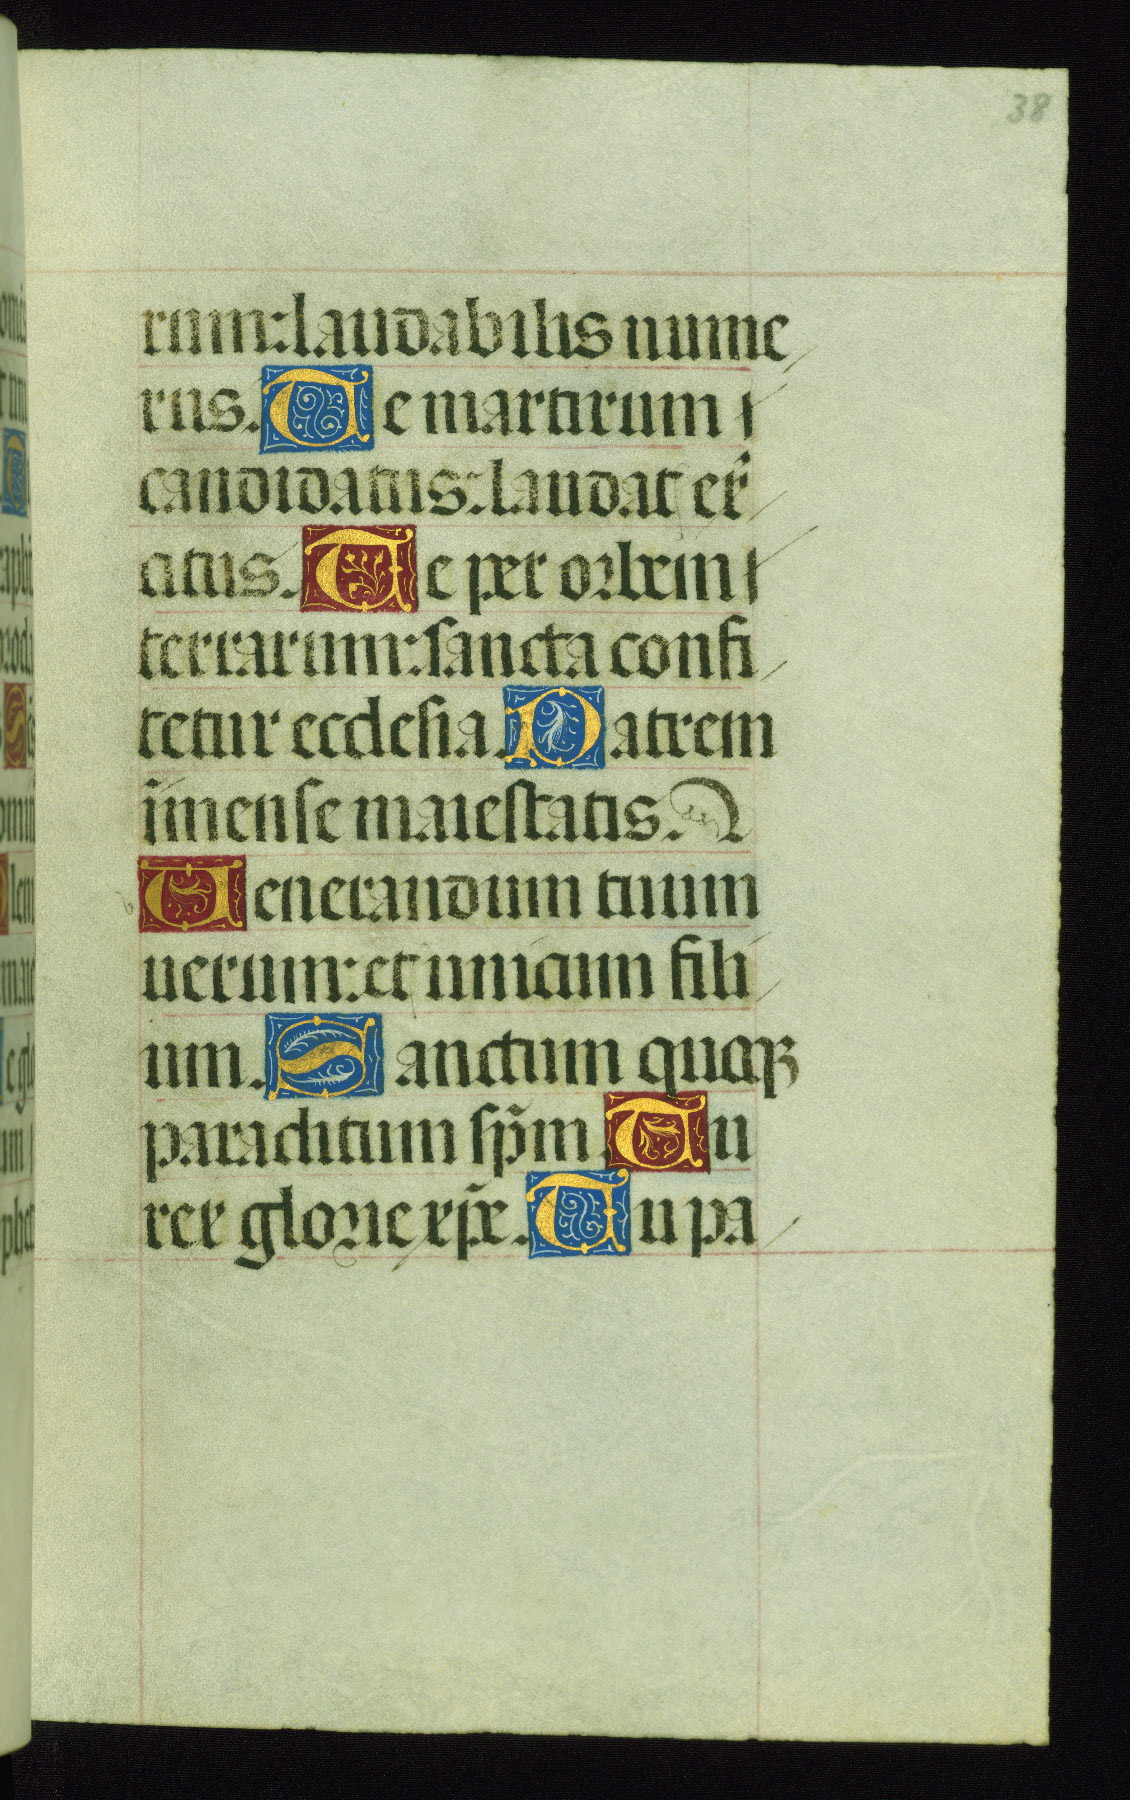 38
rum: laudabilis nume
rus. Te martirum
candidatus: laudat exˀ
citus. Te per orbem
terrarum: sancta confi
tetur ecclesia. Patrem
īmense maiestatis.
Uenerandum tuum
uerum: et unicum fili
um. Sanctum quoqꝫ
paraclitum sp̄m. Tu
rex glorie xp̄e. Tu pa